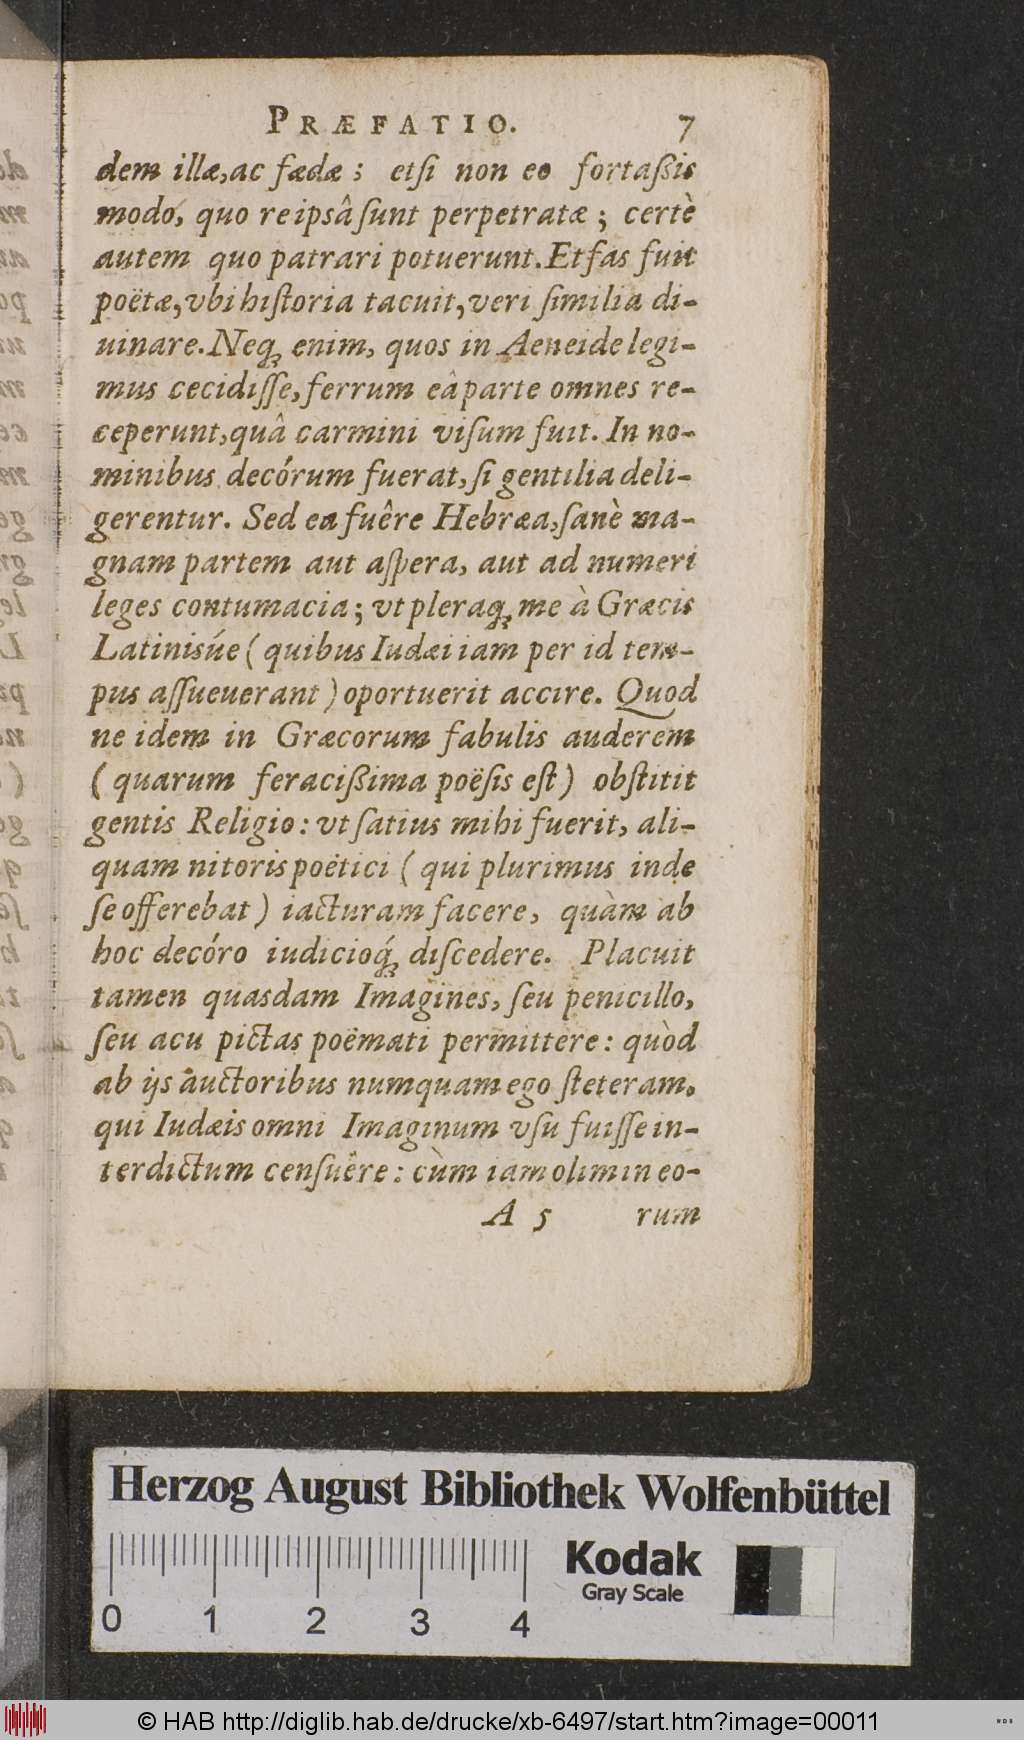 PRÆFATIO. 7
dem illæ, ac fædæ; etſi non eo fortaßis
modo, quo reipsâ ſunt perpetratæ; certè
autem quo patrari potuerunt. Et fas fuit
poëtæ, vbi hiſtoria tacuit, veri ſimilia di-
uinare. Neq́; enim, quos in Aeneide legi-
mus cecidiſſe, ferrum eâ parte omnes re-
ceperunt, quâ carmini viſum fuit. In no-
minibus decórum fuerat, ſi gentilia deli-
gerentur. Sed ea fuêre Hebræa, ſanè ma-
gnam partem aut aſpera, aut ad numeri
leges contumacia; vt pleraq́; me à Græcis
Latinisúe (quibus Iudæi iam per id tem-
pus aſſueuerant) oportuerit accire. Quod
ne idem in Græcorum fabulis auderem
(quarum feracißima poëſis eſt) obſtitit
gentis Religio: vt ſatius mihi fuerit, ali-
quam nitoris poëtici (qui plurimus inde
ſe offerebat) iacturam facere, quàm ab
hoc decóro iudicioq́; diſcedere. Placuit
tamen quasdam Imagines, ſeu penicillo,
ſeu acu pictas poëmati permittere: quòd
ab ijs auctoribus numquam ego ſteteram,
qui Iudæis omni Imaginum vſu fuiſſe in-
terdictum cenſuêre: cùm iam olim in eo-
A 5 rum
Herzog August Bibliothek Wolfenbüttel
Kodak
Gray Scale
0 1 2 3 4
© HAB http://diglib.hab.de/drucke/xb-6497/start.htm?image=00011